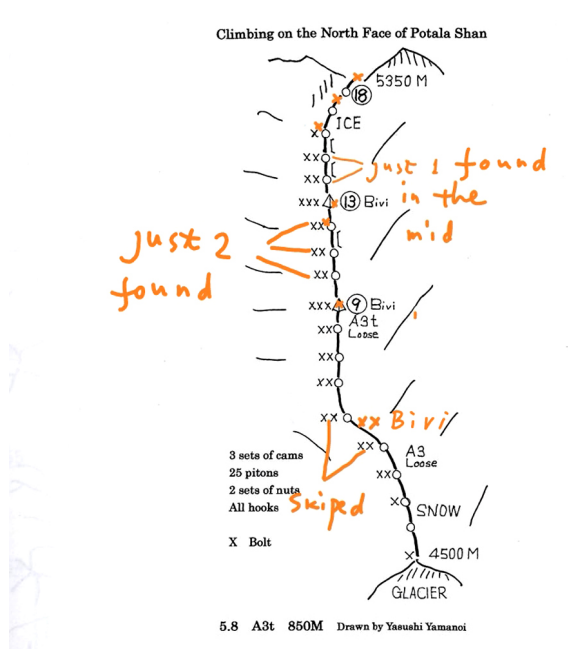 Climbing on the North Face of Potala Shan
5350 M
18
ICE
x
xx
xx
just 1 found
in the
mid
xxx 13 Bivi
xx
just 2
found
xx
xx
xxx 9 Bivi
A3t
Loose
xx
xx
xx
xx xx Bivi
xx
A3
Loose
xx
3 sets of cams
25 pitons
2 sets of nuts
All hooks
Skiped
x
SNOW
X Bolt
x 4500 M
GLACIER
5.8 A3t 850M Drawn by Yasushi Yamanoi